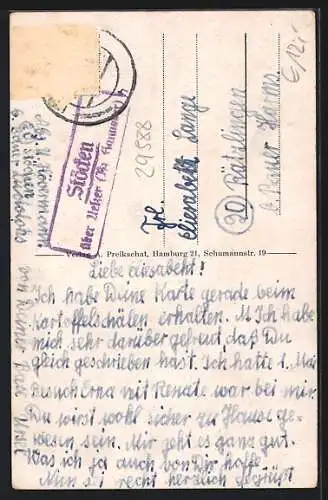 Stöcken
über Uelzen (Bz. Hannover)
Frl.
Elisabeth Lange
(20) Rätzlingen
b. Bauer Harms.
29588
€12,-
Preikschat, Hamburg 21, Schumannstr. 19
Liebe Elisabeht!
Ich habe Deine Karte gerade beim
Kartoffelschälen erhalten. Ich habe
mich sehr darüber gefreut, daß Du
gleich geschrieben has't. Ich hatte 1. Mai
Besuch Erna mit Renate war bei mir
Du wirst wohl sicher zu Hause ge-
wesen sein. Mir geht es ganz gut.
Was ich ja auch von Dir hoffe.
Nun sei recht herzlich gegrüßt
von Deiner